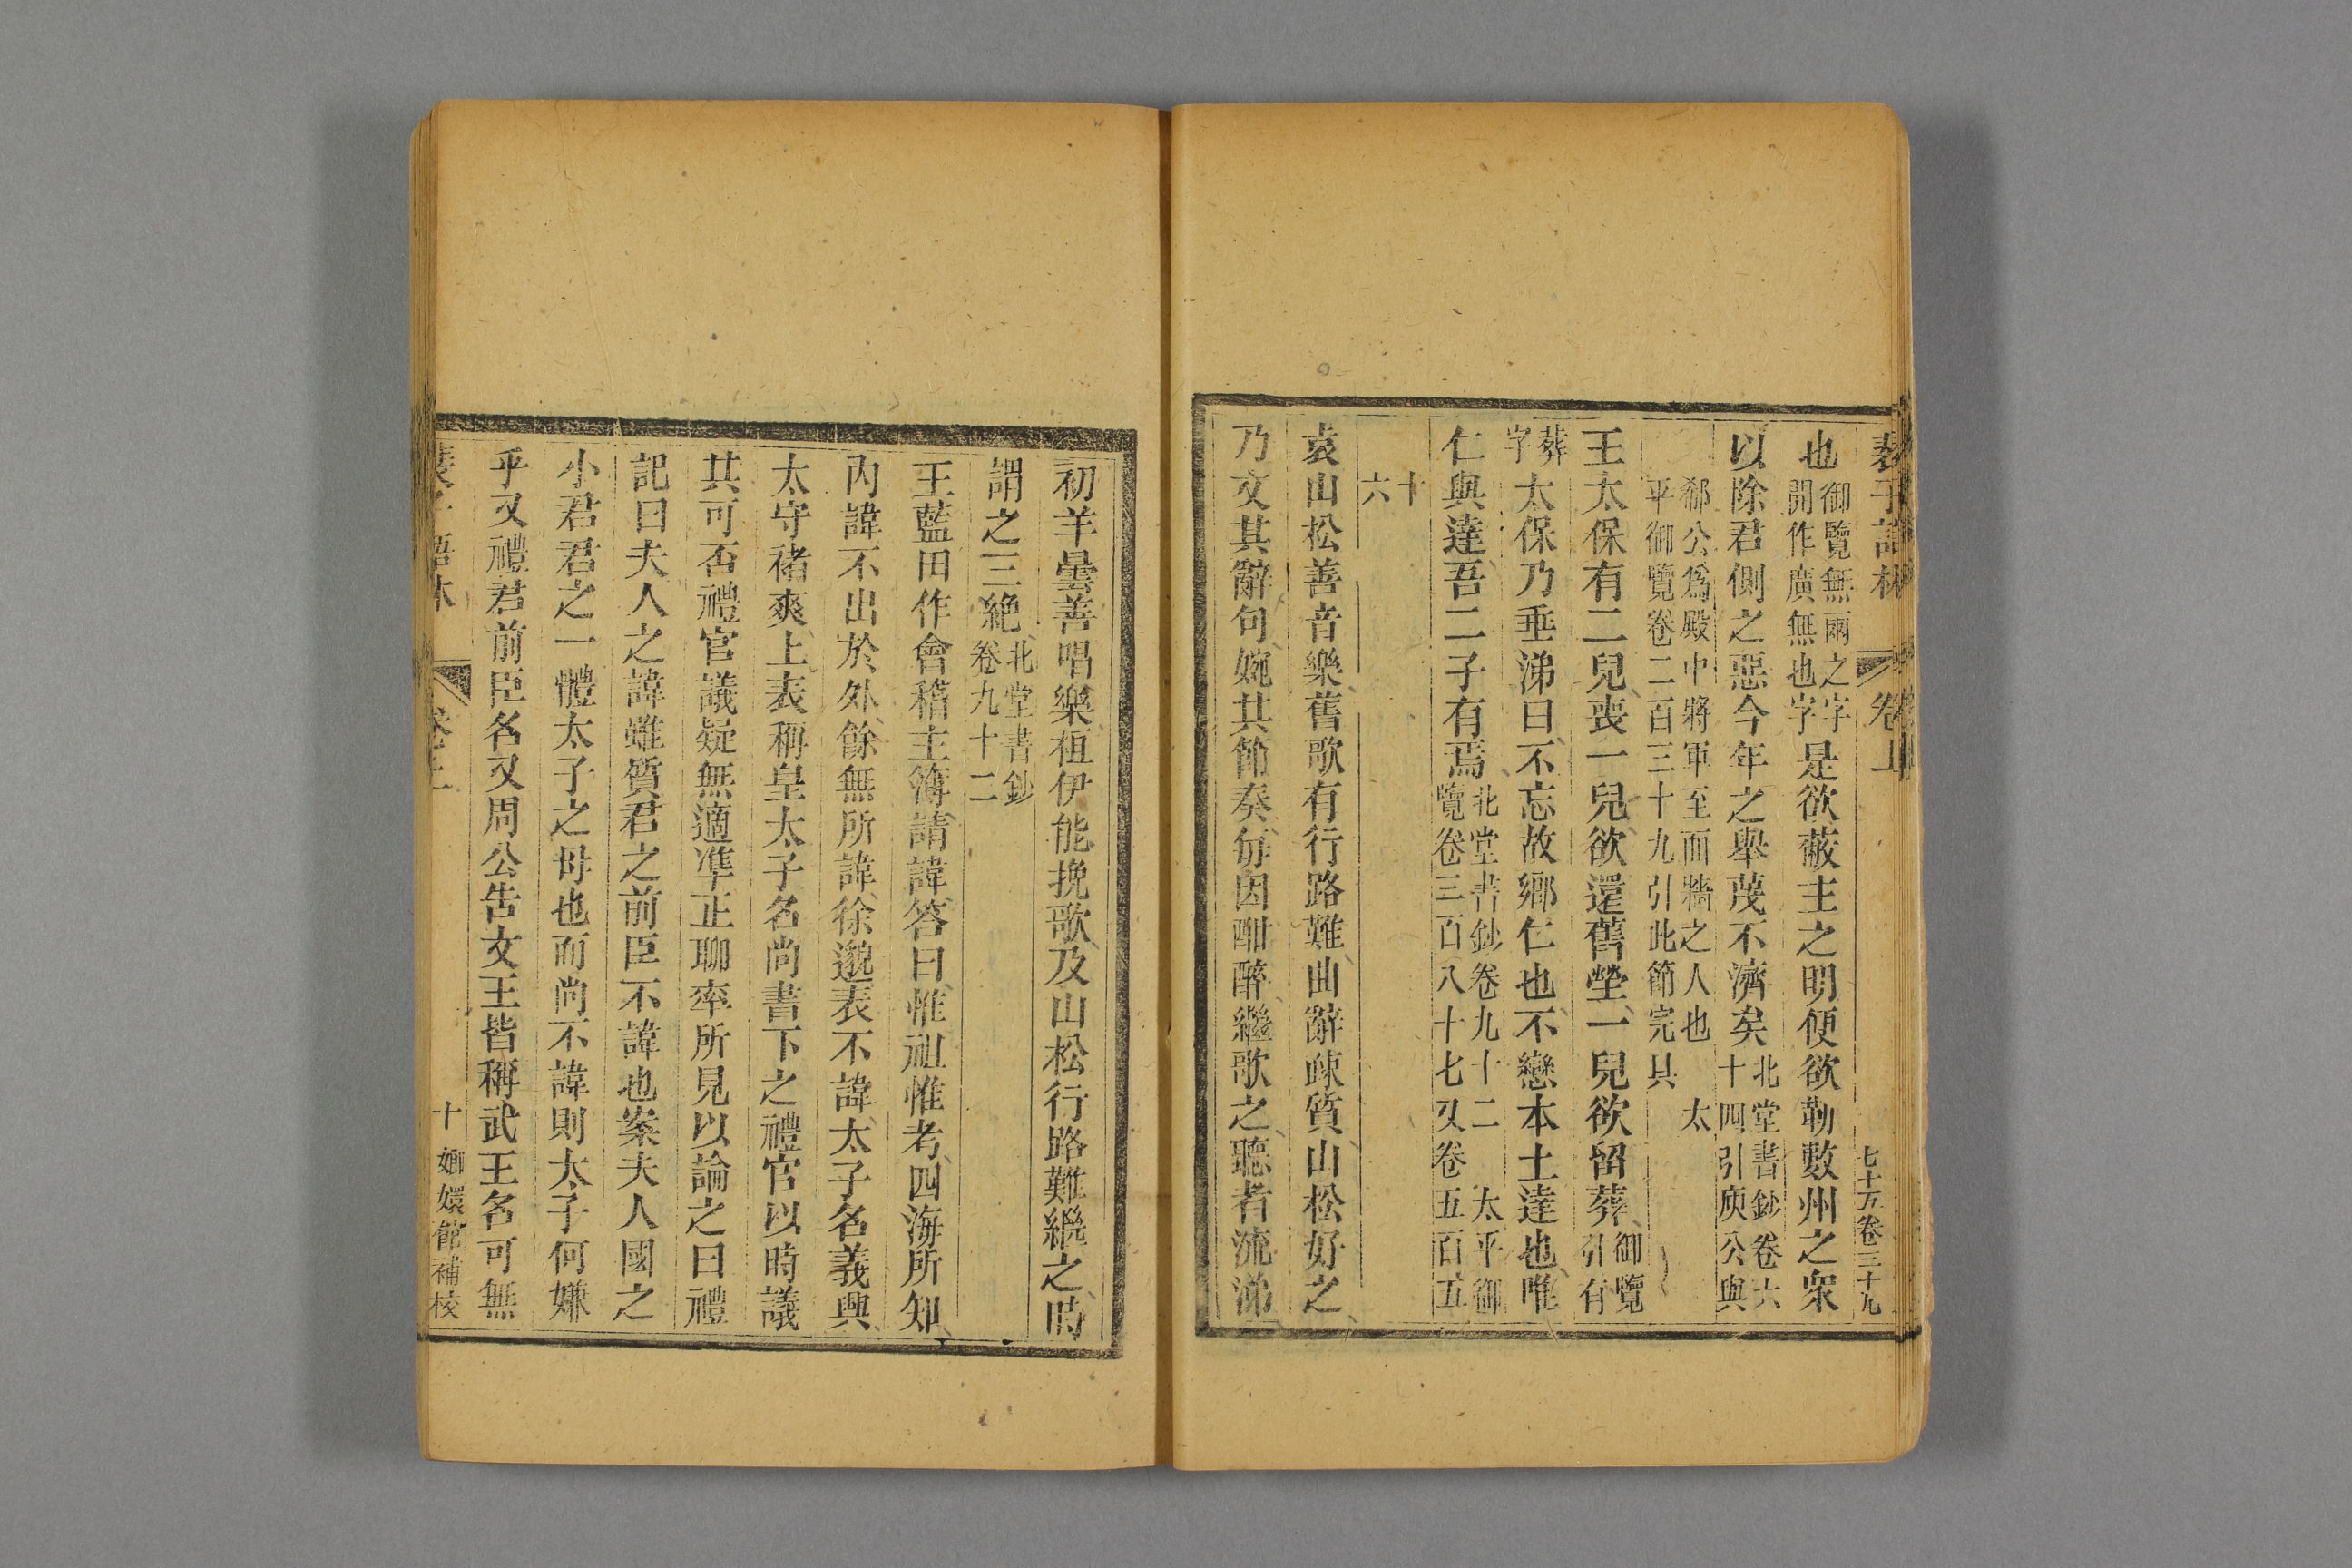 裴子語林 卷上 七十五卷三十九
也御覽無雨之字開作廣無也字是欲蔽主之明便欲勒數州之衆
以除君側之惡今年之舉茂不濟矣北堂書鈔卷六十四引庾公與
郗公爲殿中將軍至而牆之人也太平御覽卷二百三十九引此節完具
王太保有二兒喪一兒欲還舊塋一兒欲留葬御覽引有
葬字太保乃垂涕曰不忘故鄉仁也不戀本土達也唯
仁與達吾二子有焉北堂書鈔卷九十二太平御覽卷三百八十七又卷五百五
十六
袁山松善音樂舊歌有行路難曲辭疎質山松好之
乃文其辭句婉其節奏每因酣醉繼歌之聽者流涕
初羊曇善唱樂桓伊能挽歌及山松行路難繼之時
謂之三絶北堂書鈔卷九十二
王藍田作會稽主簿請諱答曰惟祖惟考四海所知
內諱不出於外餘無所諱徐邈表不諱太子名義興
太守褚爽上表稱皇太子名尚書下之禮官以時議
其可否禮官議疑無適準正聊率所見以論之曰禮
記曰夫人之諱雖質君之前臣不諱也案夫人國之
小君君之一體太子之母也而尚不諱則太子何嫌
乎又禮君前臣名又周公告文王皆稱武王名可無
裴子語林 卷上 十 嫏嬛館補校